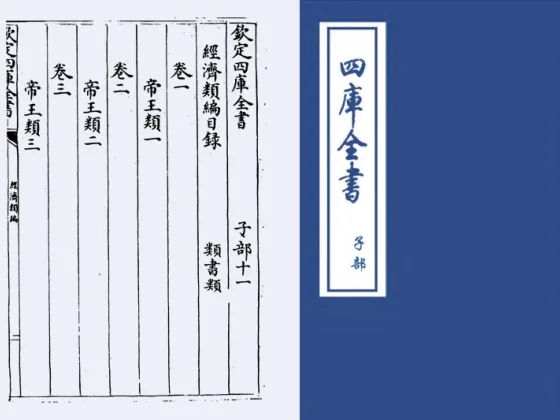 欽定四庫全書 子部十一
經濟類編目録 類書類
卷一
帝王類一
卷二
帝王類二
卷三
帝王類三
欽定四庫全書
經濟類編
四庫全書
子部